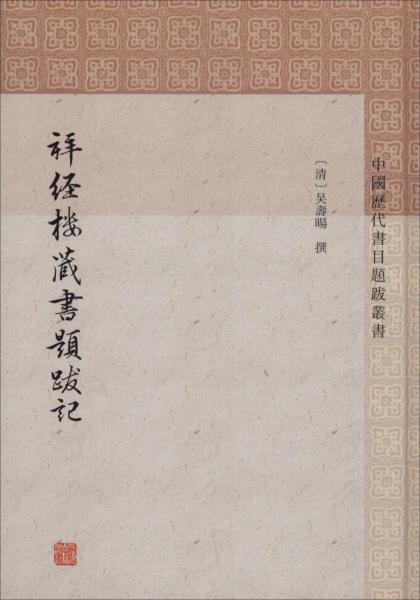 中國歷代書目題跋叢書
〔清〕吴壽暘 撰
拜經樓藏書題跋記